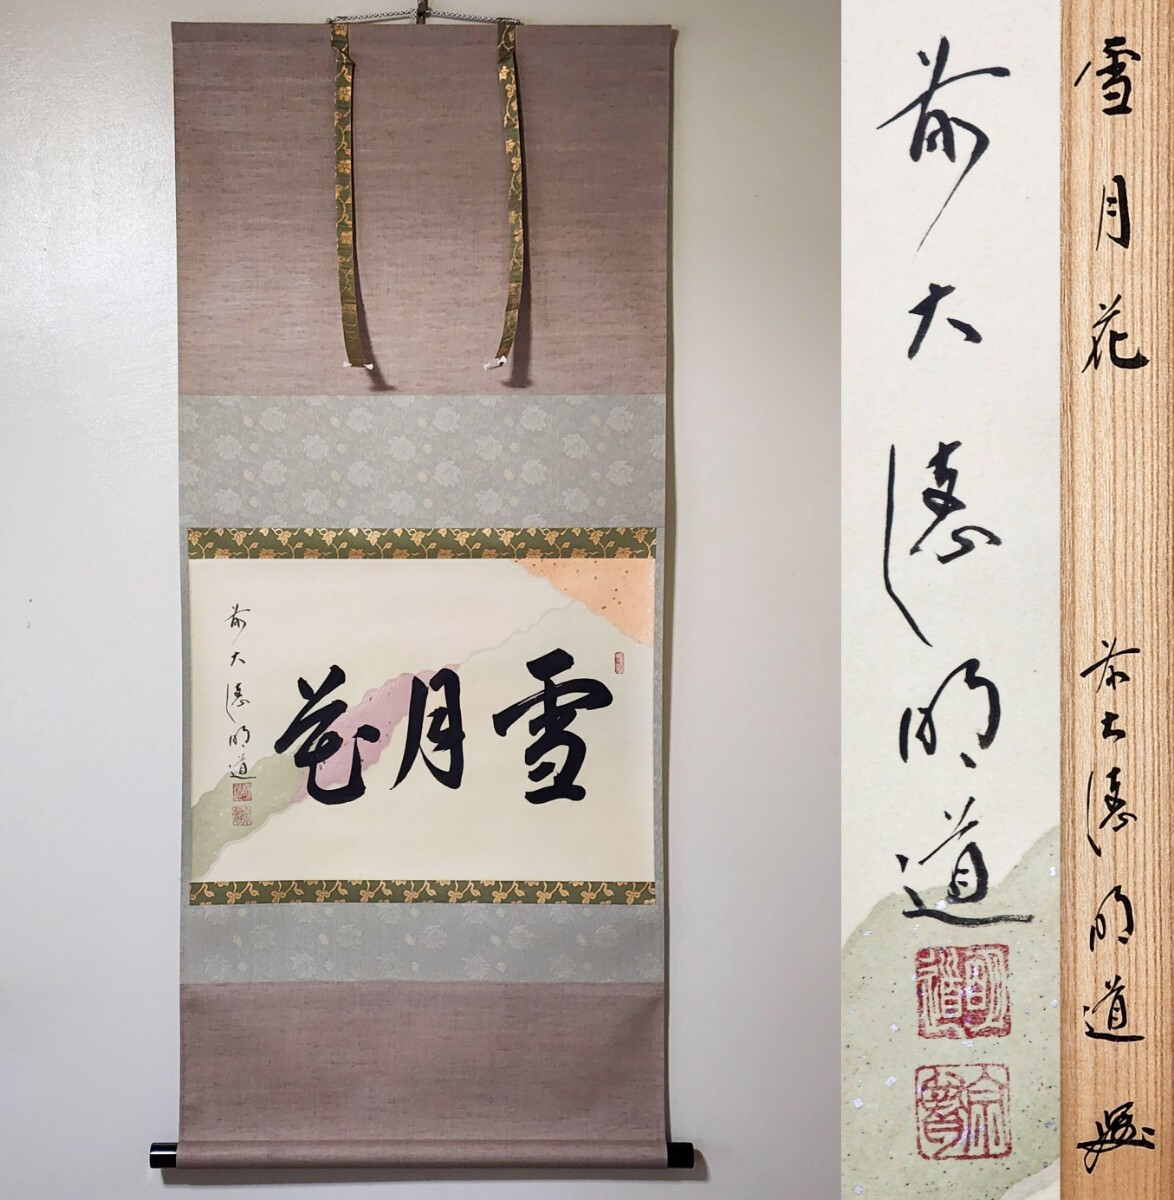 雪月花
前大徳明道
明道
宗
前大徳明道
雪月花
前大徳明道